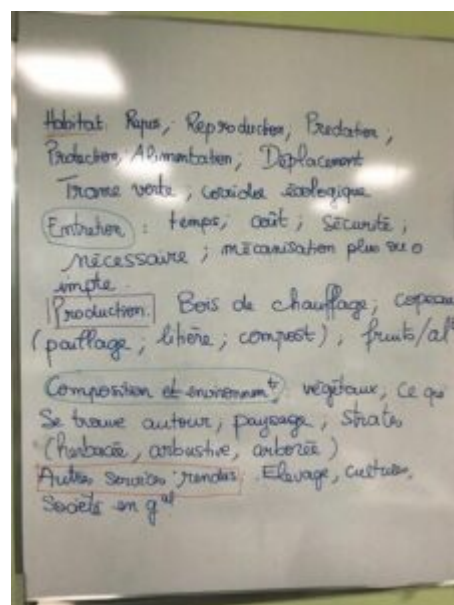 Habitat Repos, Reproduction, Prédation ;
Protection, Alimentation ; Déplacement
Trame verte ; corridor écologique
Entretien : temps ; coût ; sécurité ;
nécessaire ; mécanisation plus ou
simple.
Production. Bois de chauffage ; copeau
(paillage ; litière ; compost) ; fruits/al
Composition et environnemt végétaux, ce qui
se trouve autour ; paysage ; strates
(herbacée, arbustive, arborée)
Autres services rendus. Elevage, cultures,
Société en gal